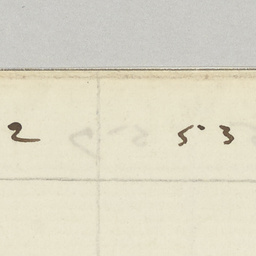 2 53